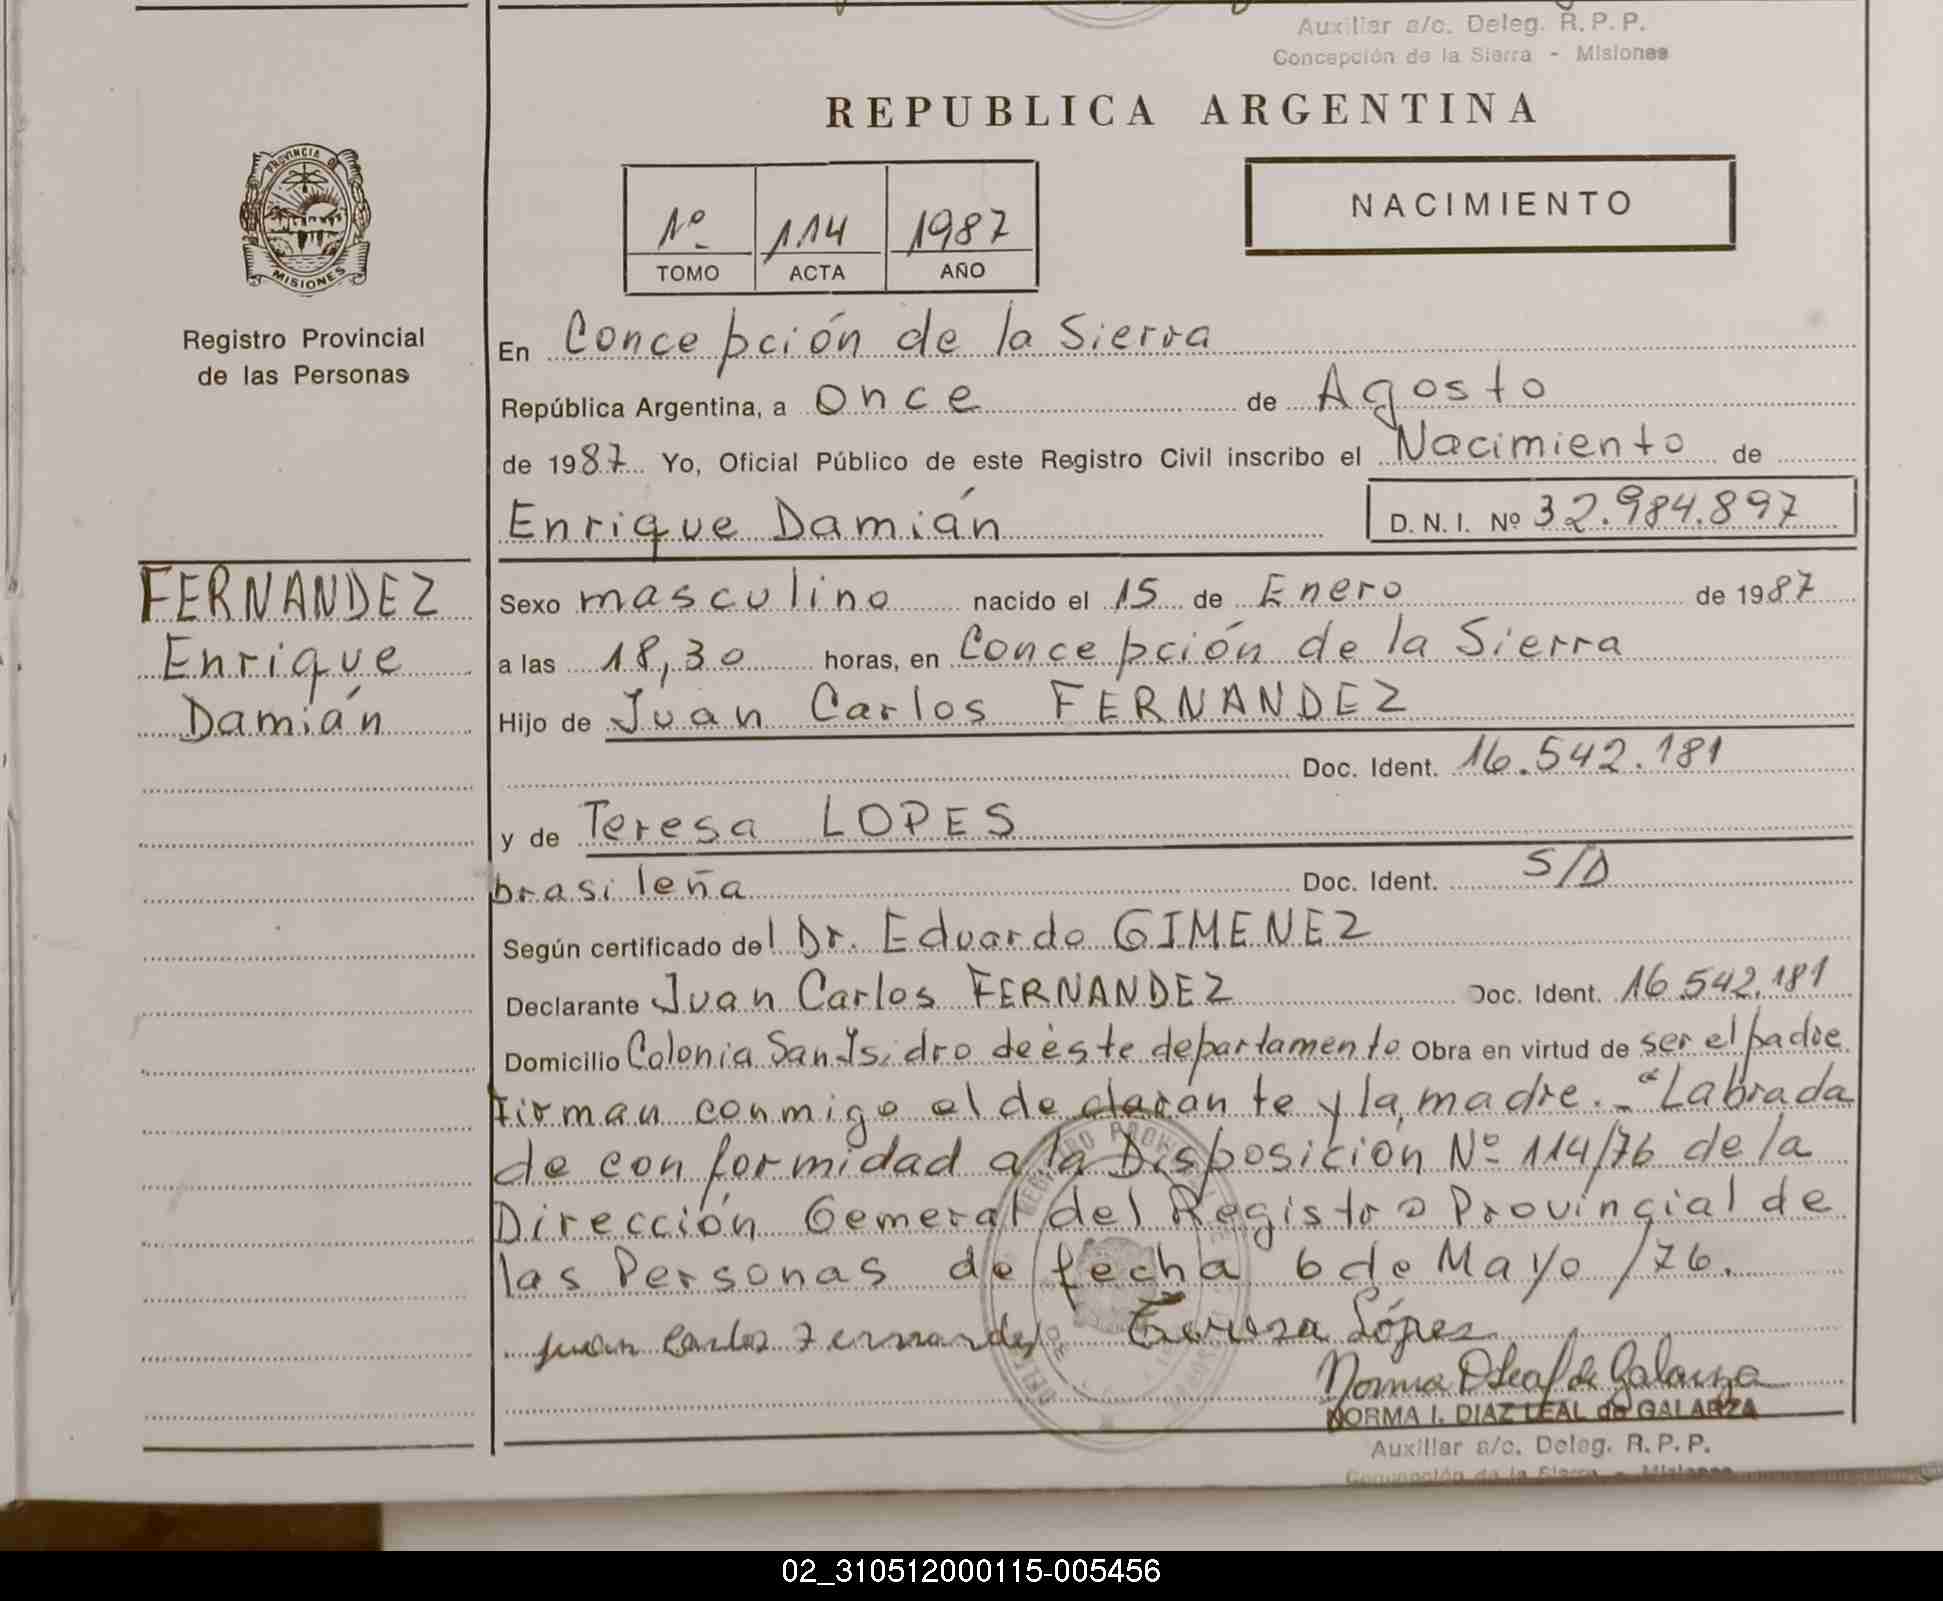 Auxiliar a/c. Deleg. R. P. P.
Concepción de la Sierra - Misiones
REPUBLICA ARGENTINA
PROVINCIA DE
MISIONES
Registro Provincial
de las Personas
Nº 114 1987
TOMO ACTA AÑO
NACIMIENTO
En Concepción de la Sierra
República Argentina, a once de Agosto
de 1987 Yo, Oficial Público de este Registro Civil inscribo el Nacimiento de
Enrique Damián D. N. I. Nº 32.984.897
FERNANDEZ
Enrique
Damián
Sexo masculino nacido el 15 de Enero de 1987
a las 18,30 horas, en Concepción de la Sierra
Hijo de Juan Carlos FERNANDEZ
Doc. Ident. 16.542.181
y de Teresa LOPES
brasileña Doc. Ident. S/D
Según certificado del Dr. Eduardo GIMENEZ
Declarante Juan Carlos FERNANDEZ Doc. Ident. 16.542.181
Domicilio Colonia San Isidro de éste departamento Obra en virtud de ser el padre
Firman conmigo el declarante y la madre.- "Labrada
de conformidad a la Disposición Nº 114/76 de la
Dirección General del Registro Provincial de
las Personas de fecha 6 de Mayo /76.
Juan Carlos Fernandez Teresa López
NORMA I. DIAZ LEAL de GALARZA
Auxiliar a/c. Deleg. R. P. P.
Concepción de la Sierra - Misiones
02_310512000115-005456